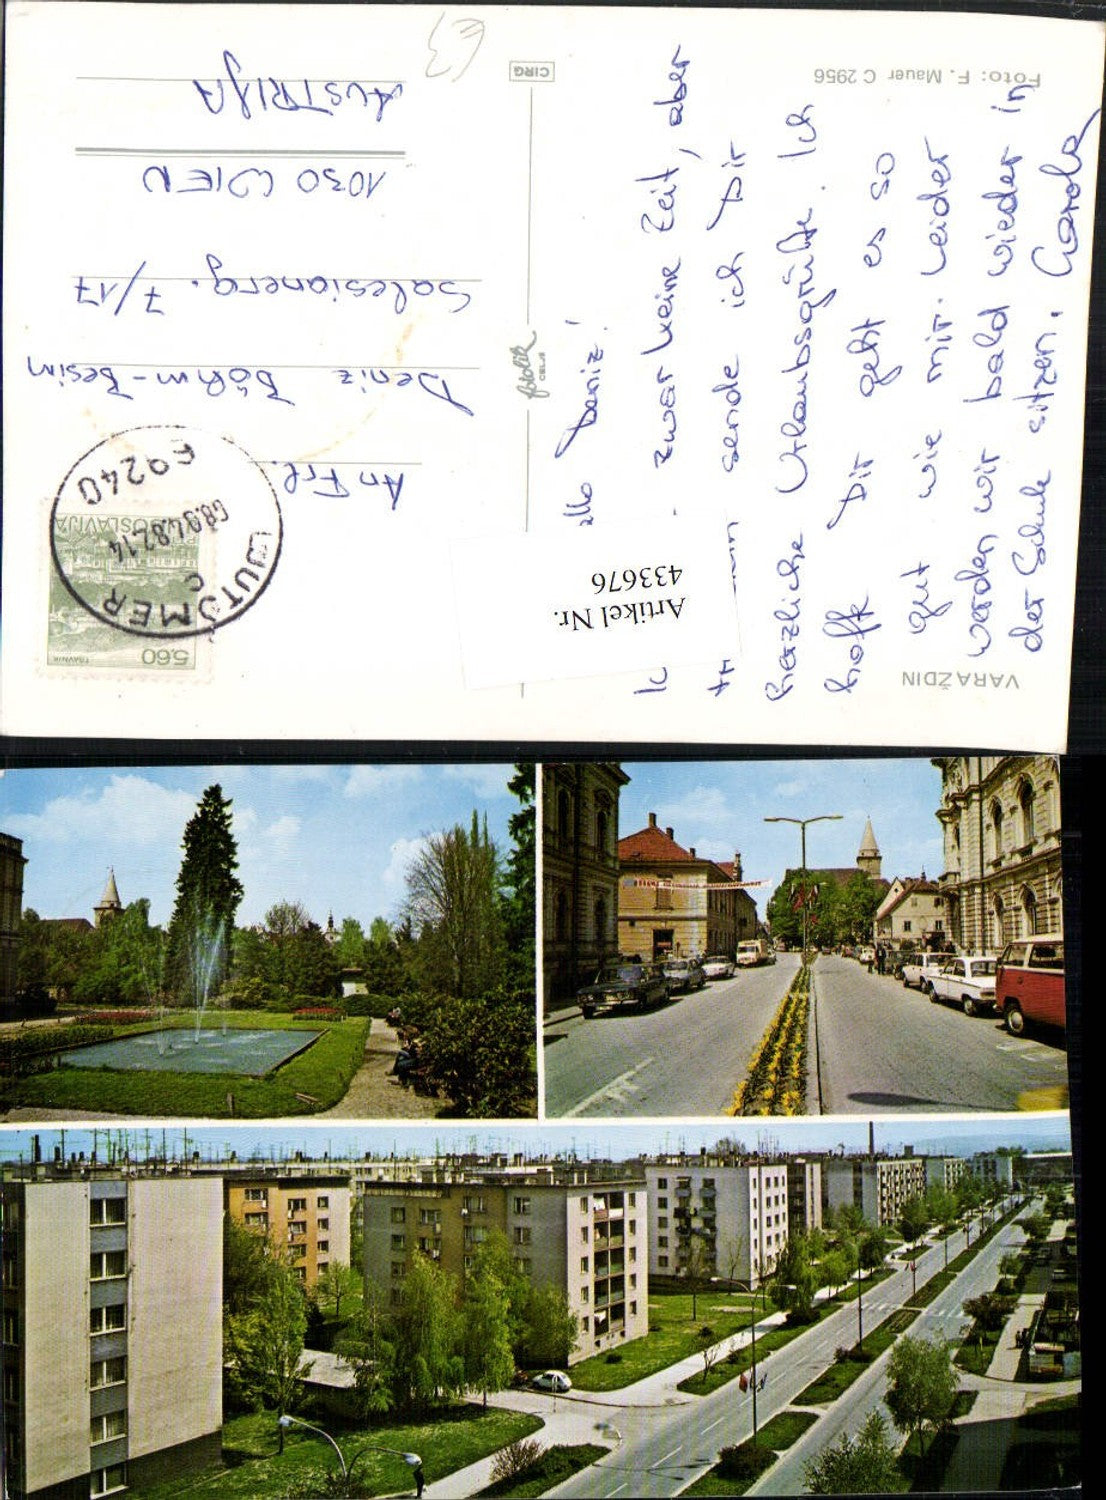 VARAŽDIN
Foto: F. Mauer C 2956
CIRG
fotolik
CELJE
Artikel Nr.
433676
Deniz!
zwar keine Zeit, aber
sende ich Dir
herzliche Urlaubsgrüße. Ich
hoff Dir geht es so
gut wie mir. Leider
werden wir bald wieder in
der Schule sitzen. Carola
An Frl.
Deniz Böhm-Besim
Salesianerg. 7/17
1030 WIEN
AUSTRIJA
€3
5.60
TRAVNIK
JUGOSLAVIJA
LJUTOMER
69240